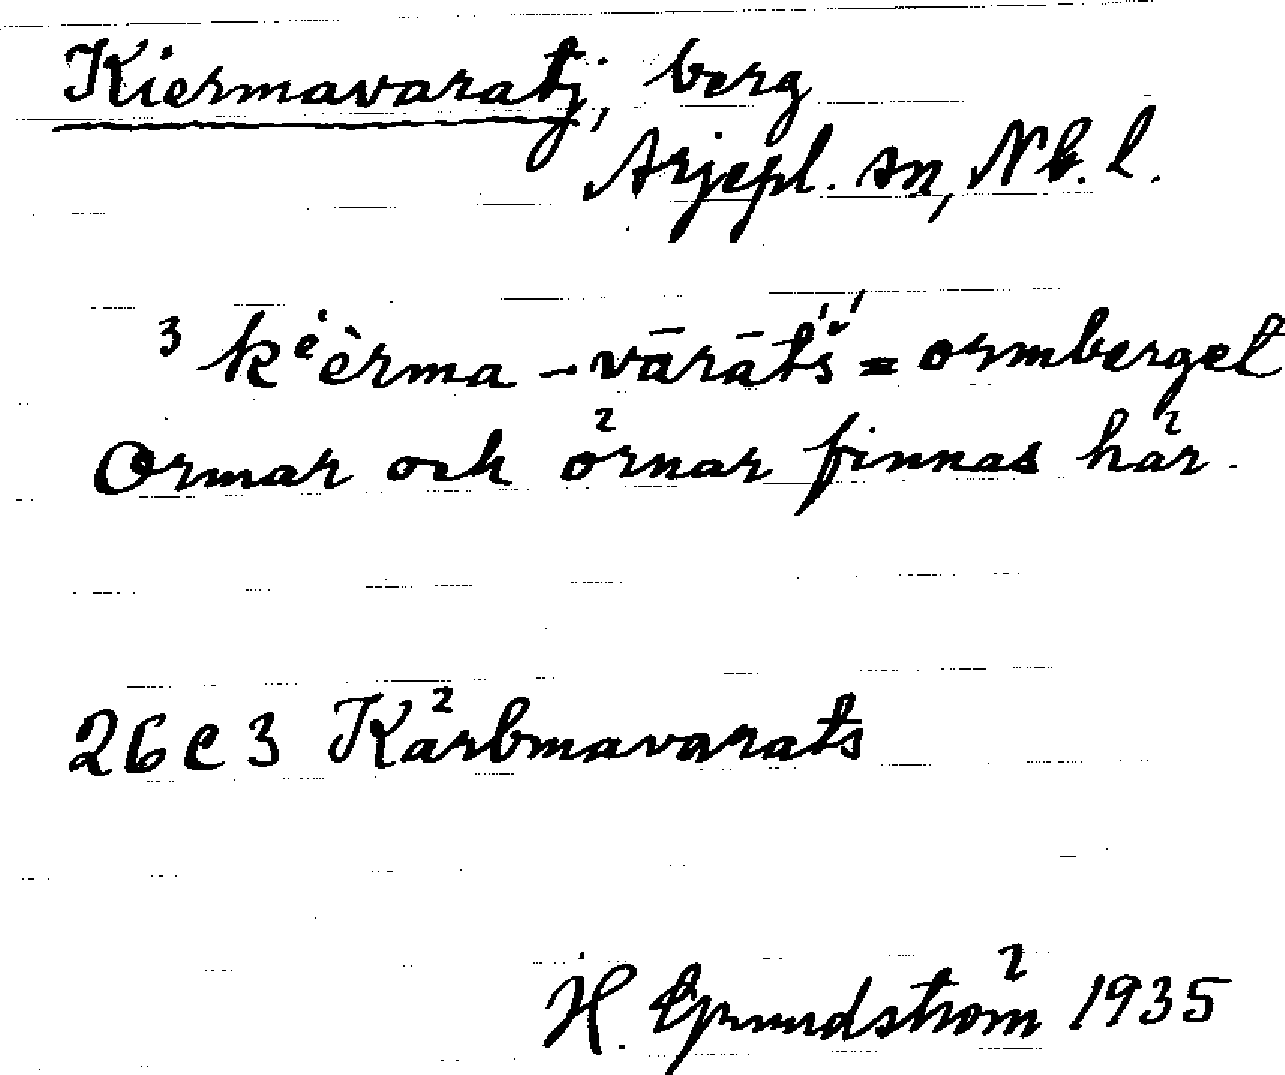 Kiermavaratj, berg
Arjepl. sn, Nb. l.
³ kᵉèrma-vārāts̆ = ormberget
Ormar och örnar finnas här.
26 e 3 Kärbmavarats
H. Grundström 1935